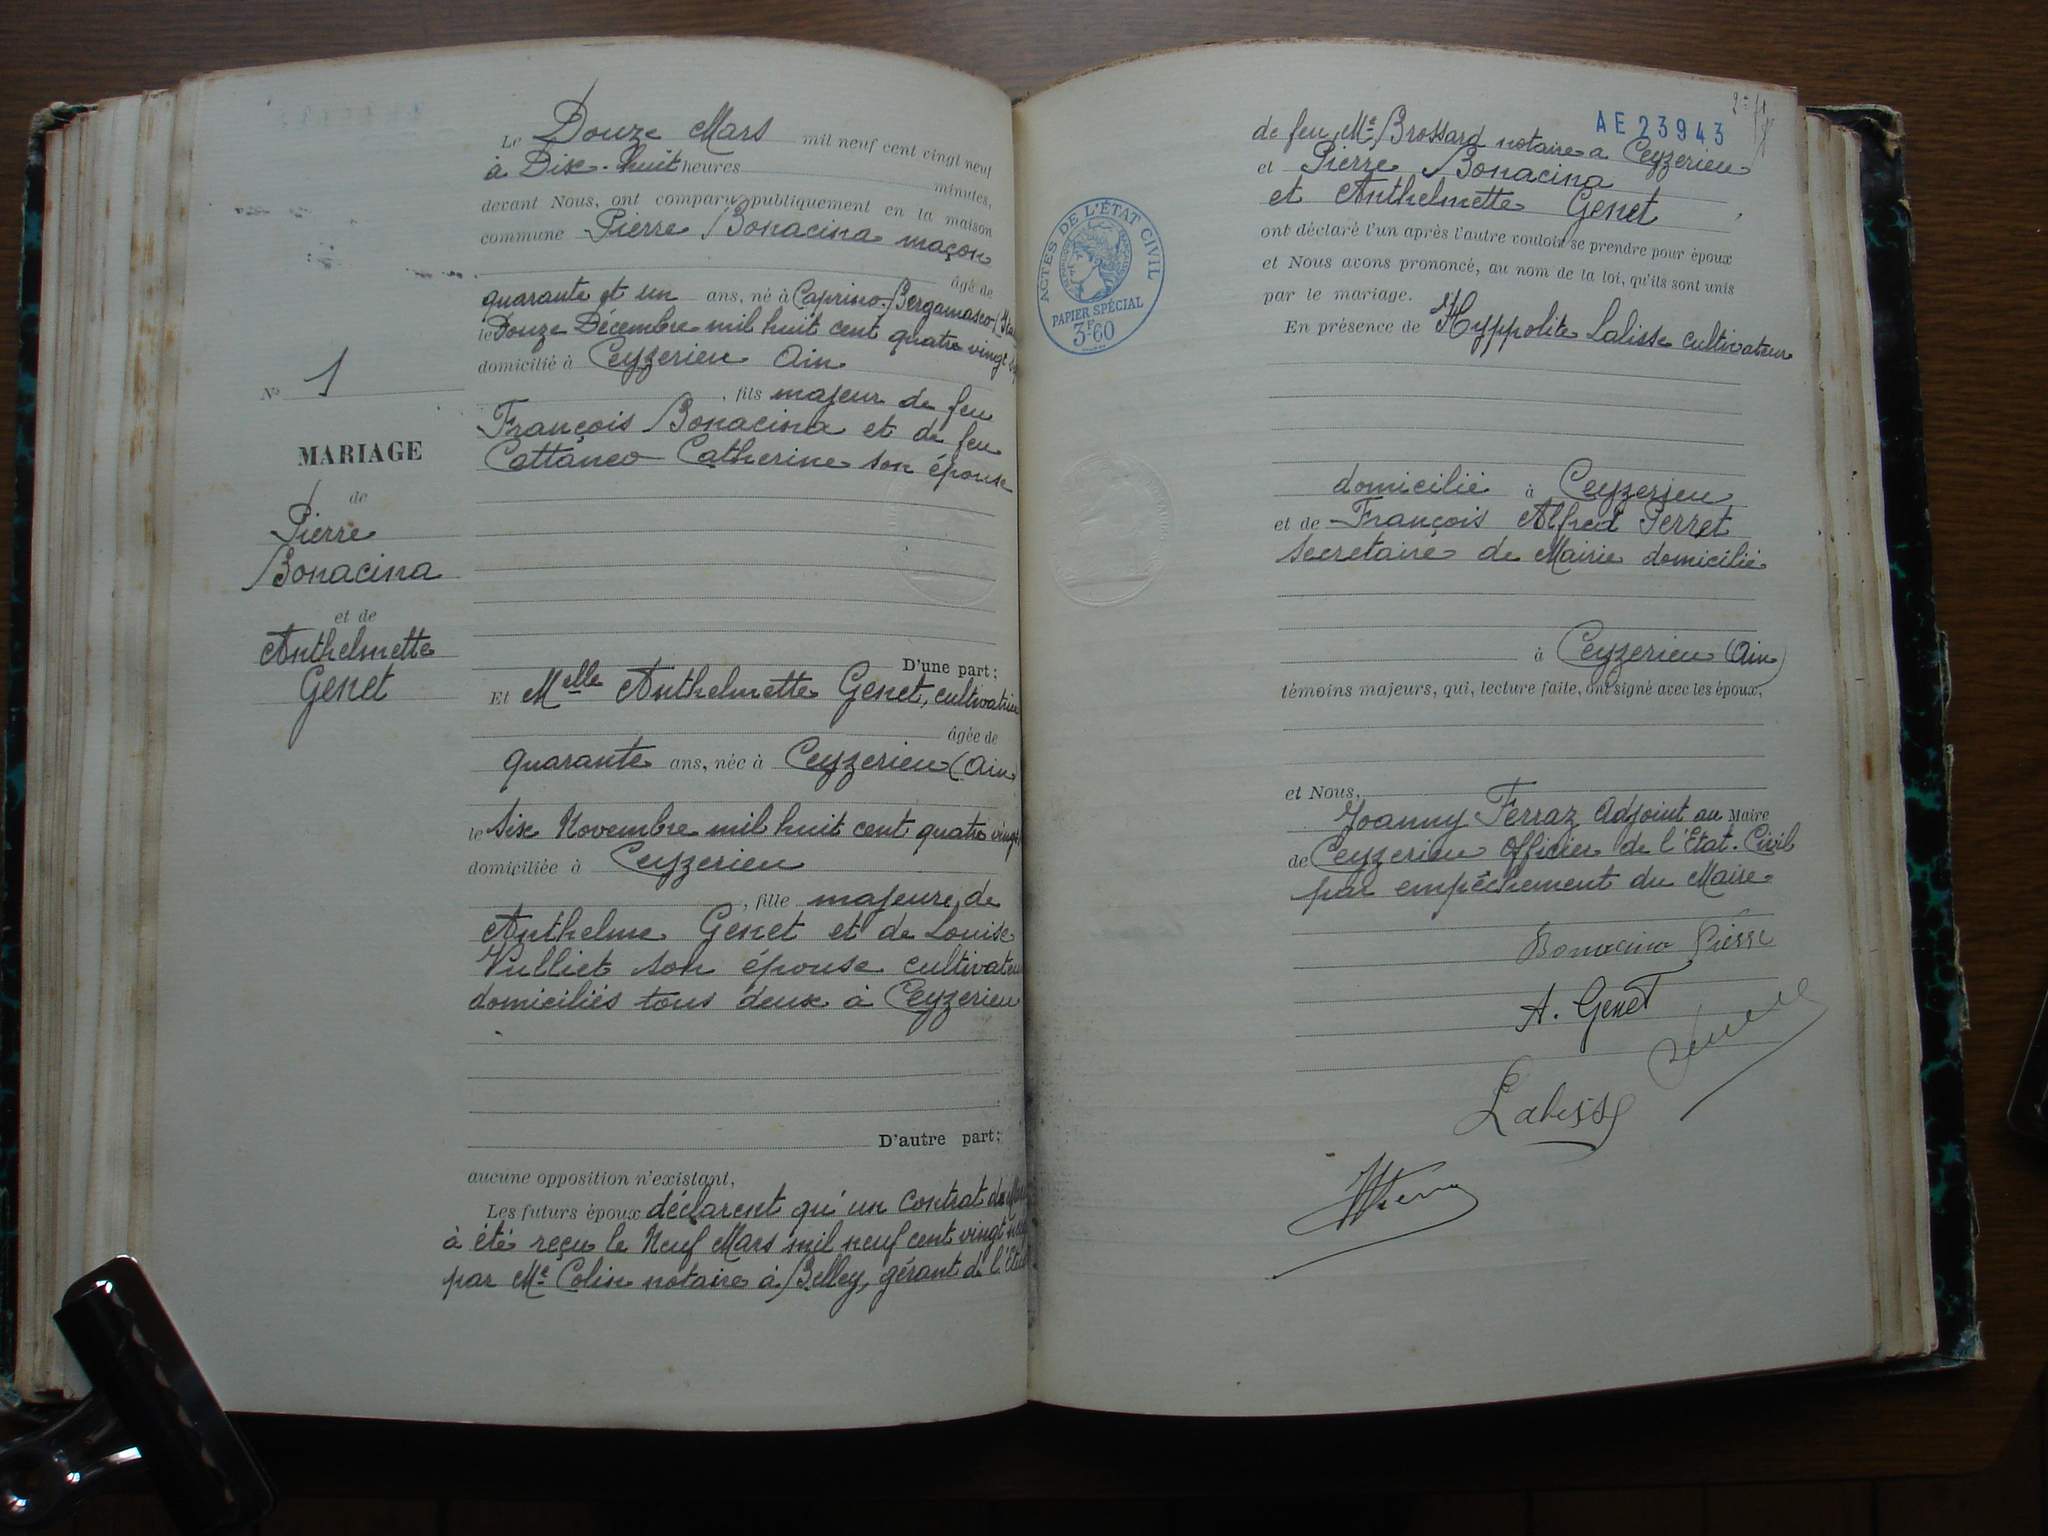 Le Douze Mars mil neuf cent vingt neuf
à Dix-huit heures minutes,
devant Nous, ont comparu publiquement en la maison
commune Pierre Bonacina maçon
âgé de
quarante et un ans, né à Caprino-Bergamasco
le Douze Décembre mil huit cent quatre vingt
domicilié à Ceyzerieu Ain
, fils majeur de feu
François Bonacina et de feu
Cattanéo Catherine son épouse
D'une part;
Et Melle Anthelmette Genet, cultivatrice
âgée de
quarante ans, née à Ceyzerieu (Ain)
le six Novembre mil huit cent quatre vingt
domiciliée à Ceyzerieu
, fille majeure de
Anthelme Genet et de Louise
Vulliet son épouse cultivateurs
domiciliés tous deux à Ceyzerieu
D'autre part;
aucune opposition n'existant,
Les futurs époux déclarent qu'un contrat de
à été reçu le Neuf Mars mil neuf cent vingt neuf
par Me Colin notaire à Belley, gérant de l'Etude
Nº 1
MARIAGE
de
Pierre
Bonacina
et de
Anthelmette
Genet
AE23943
de feu Me Brossard notaire a Ceyzerieu
et Pierre Bonacina
et Anthelmette Genet
ont déclaré l'un après l'autre vouloir se prendre pour époux
et Nous avons prononcé, au nom de la loi, qu'ils sont unis
par le mariage.
En présence de Hyppolite Lalisse cultivateur
domicilié à Ceyzerieu
et de François Alfred Perret
secretaire de Mairie domicilié
à Ceyzerieu (Ain)
témoins majeurs, qui, lecture faite, ont signé avec les époux,
et Nous,
Joanny Ferraz Adjoint au Maire
de Ceyzerieu Officier de l'Etat-Civil
par empêchement du Maire
Bonacina Pierre
A. Genet
Lalisse
ACTES DE L'ÉTAT CIVIL
PAPIER SPÉCIAL
3F60